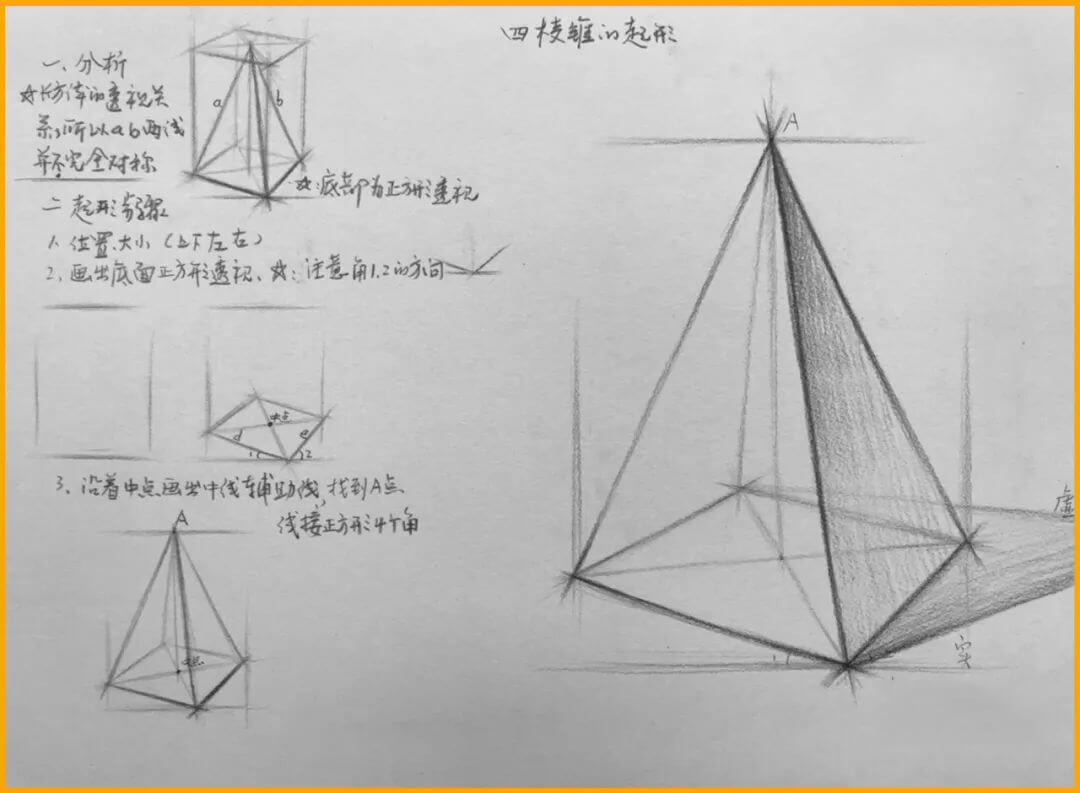 四棱锥的起形
一、分析
☆长方体的透视关
系,所以a b两线
并不完全对称
a
b
☆:底部为正方形透视
二 起形步骤
1、位置、大小（上下左右）
2、画出底面正方形透视、☆:注意角1.2的方向
中点
d
e
1
2
3、沿着中点画出中线辅助线,找到A点
线接正方形4个角
A
中点
A
虚
实
1